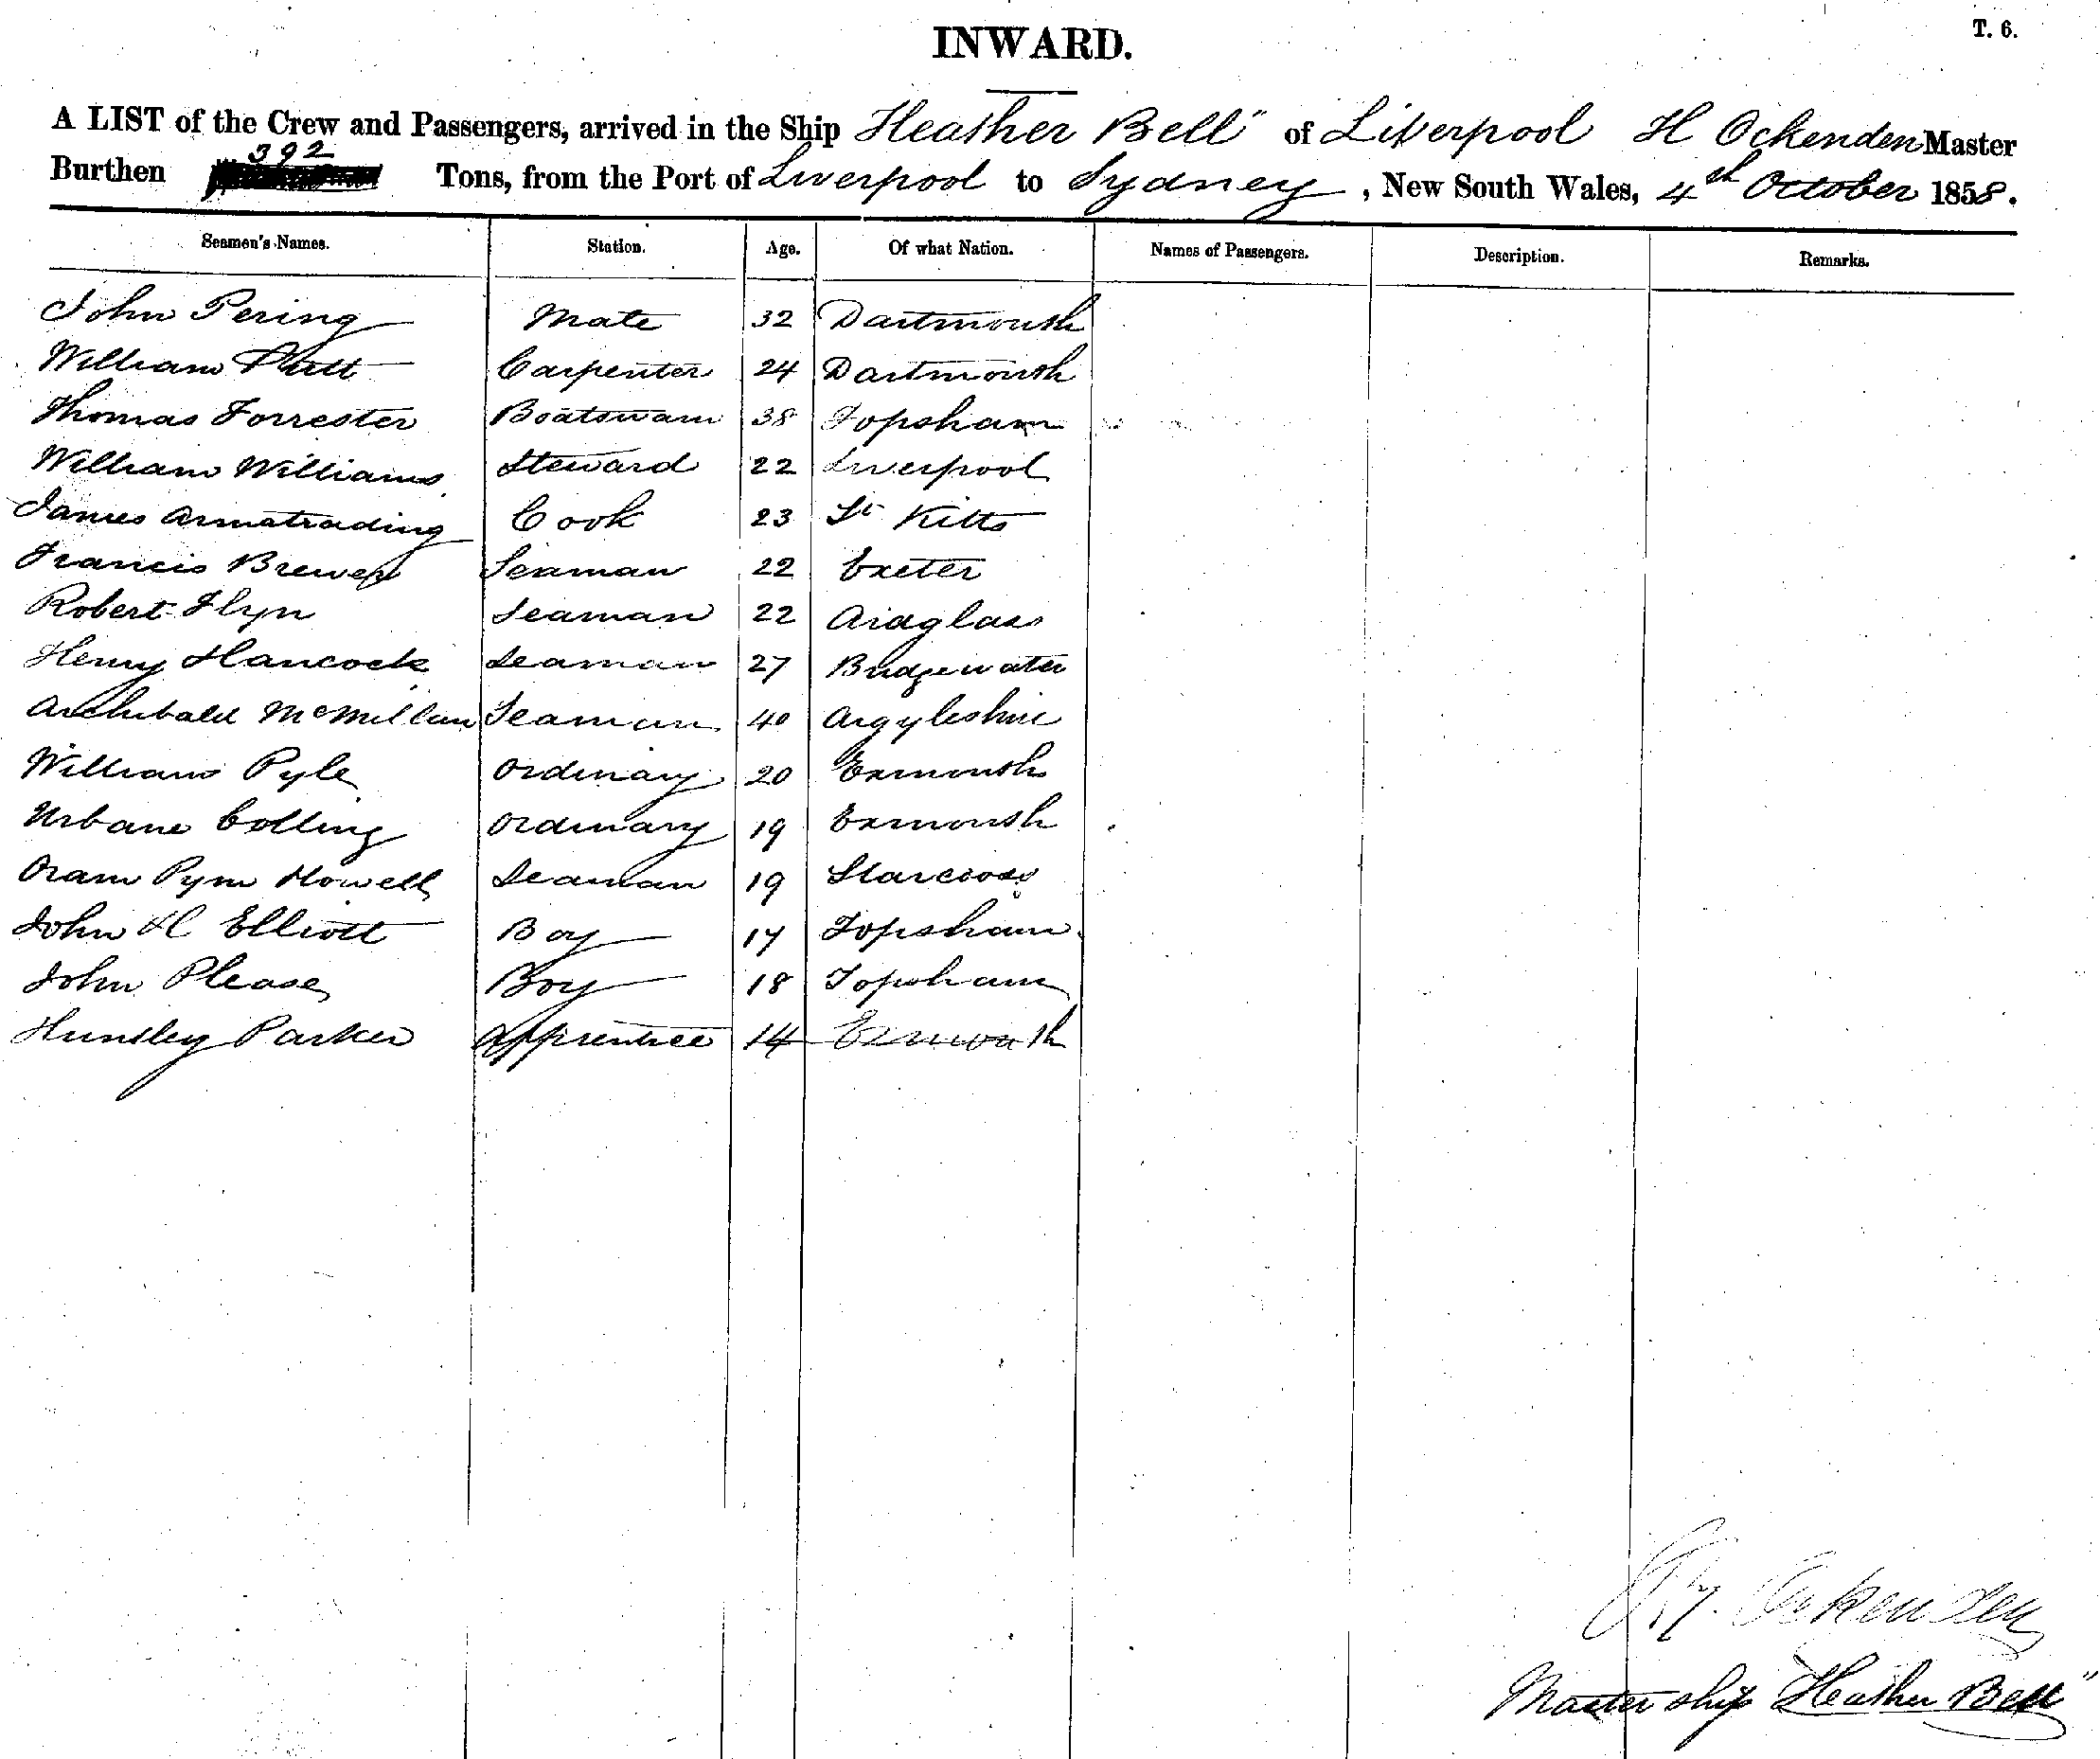 T. 6.
INWARD.
A LIST of the Crew and Passengers, arrived in the Ship Heather Bell" of Liverpool H Ockenden Master
Burthen 392 Tons, from the Port of Liverpool to Sydney, New South Wales, 4th October 1858.
Seamen's Names. Station. Age. Of what Nation. Names of Passengers. Description. Remarks.
John Pering Mate 32 Dartmouth
William Phett Carpenter 24 Dartmouth
Thomas Forrester Boatswain 38 Topsham
William Williams Steward 22 Liverpool
James Armatrading Cook 23 St Kitts
Francis Brewer Seaman 22 Exeter
Robert Flyn Seaman 22 Ardglass
Henry Hancock Seaman 27 Bridgewater
Archibald McMillan Seaman 40 Argyleshire
William Pyle Ordinary 20 Exmouth
Urbane Colling Ordinary 19 Exmouth
Oram Pym Howell Seaman 19 Starcross
John H Elliott Boy 17 Topsham
John Please Boy 18 Topsham
Huntley Parker Apprentice 14 Exmouth
Hy. Ockenden
Master ship "Heather Bell"